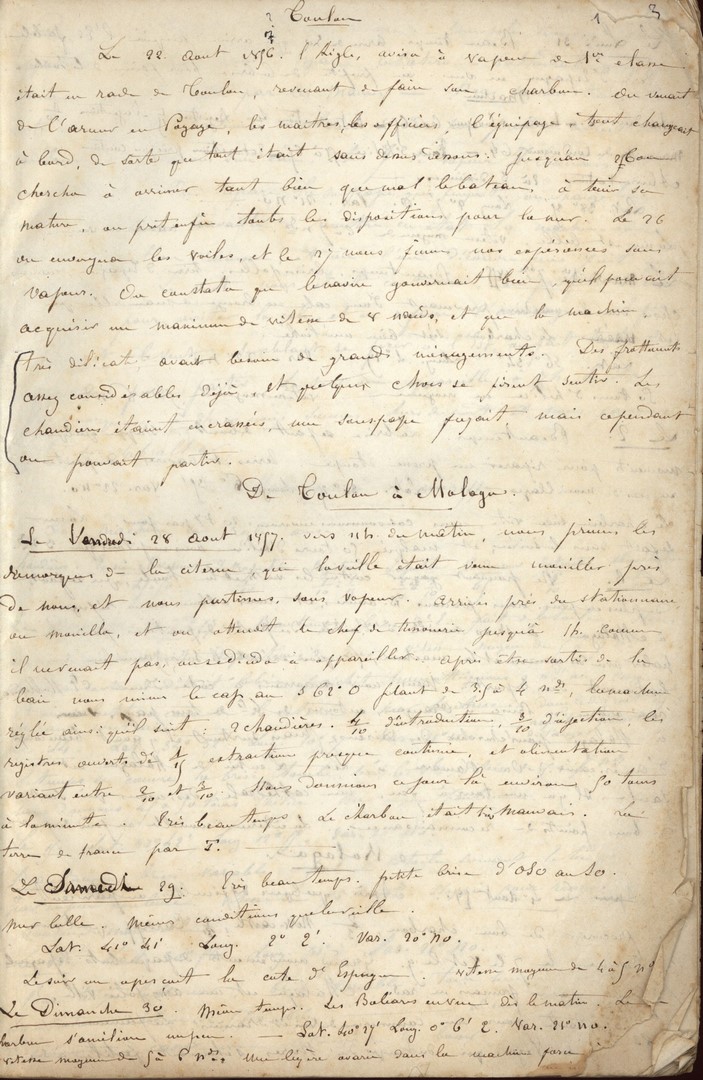 Toulon
1 3
Le 22 Aout 1856. l'Aigle, aviso à vapeur de 1ere classe
était en rade de Toulon, revenant de faire son charbon. On venait
de l'armer en, les maitres, les officiers, l'équipage tout changeait
à bord, de sorte que tout était sans dessus dessous. Jusqu'au on
chercha à arrimer tant bien que mal le bateau, à tenir sa
mature, on prit enfin toutes les dispositions pour la mer. Le 26
on envergua les voiles, et le 27 nous fimes nos expériences sous
vapeur. On constata que le navire gouvernait bien, qu'il pouvait
acquérir un maximum de vitesse de 8 nœuds, et que la machine
très délicate avait besoin de grands ménagements. Des frottements
assez considérables déjà, et quelques chocs se firent sentir. Les
chaudières étaient encrassées, une soupape fuyait, mais cependant
on pouvait partir.
De Toulon à Malaga.
Le Vendredi 28 Aout 1857. vers 11h du matin, nous primes les
remorques de la citerne, qui la veille était venue mouiller près
de nous, et nous partimes, sous vapeur. Arrivés près du stationnaire
on mouilla, et on attendit le chef de timonerie jusqu'à 1h. comme
il ne venait pas, on se décida à appareiller. Après être sortis de la
baie nous mimes le cap au S 62° O filant de 3,5 à 4 nds, la machine
réglée ainsi qu'il suit : 2 chaudières. 4/10 d'introduction, 3/10 d'injection, les
registres ouverts de 1/15 extraction presque continue, et alimentation
variant entre 2/10 et 3/10 Nous donnions ce jour là environ 50 tours
à la minute. Très beau temps. Le charbon était très mauvais. La
terre de france par T.
Le Samedi 29. Très beau temps. petite brise d'OSO au SO.
Mer belle. Mêmes conditions que la veille.
Lat. 41° 41' Long. 2° 2'. Var. 20° NO.
Le soir on aperçoit la cote d'Espagne. vitesse moyenne de 4 à 5 nds
Le Dimanche 30. Même temps. Les Baléares en vue dès le matin. Le
charbon s'améliore un peu. — Lat. 40° 27' Long. 0° 6' E. Var. 21° NO.
vitesse moyenne de 5 à 6 nds. Une légère avarie dans la machine força